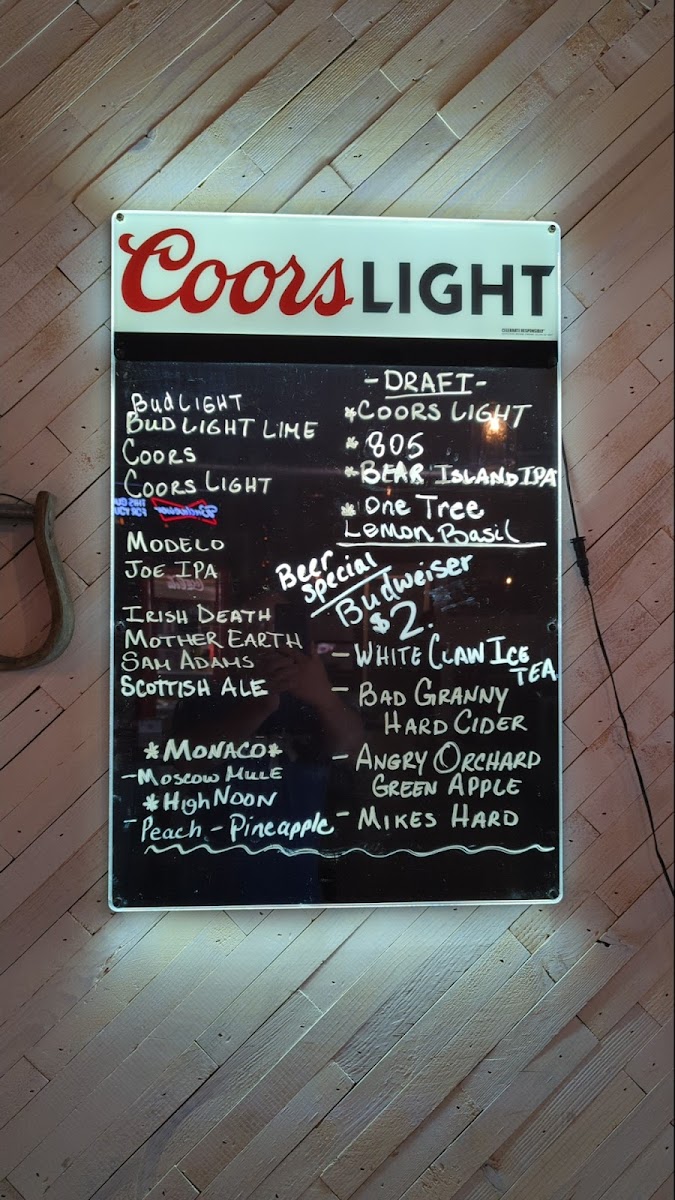 Coors LIGHT
CELEBRATE RESPONSIBLY
Bud LIGHT
BUD LIGHT LIME
COORS
COORS LIGHT
Budweiser
THIS BUD'S
FOR YOU
MODELO
JOE IPA
IRISH DEATH
MOTHER EARTH
SAM ADAMS
SCOTTISH ALE
*MONACO*
-MOSCOW MULE
*High NOON
- Peach - Pineapple
-DRAFT-
*COORS LIGHT
* 805
*BEAR ISLAND IPA
* One Tree
Lemon Basil
Beer
Special
Budweiser
$2.
- WHITE CLAW ICE
TEA
- BAD GRANNY
HARD CIDER
- ANGRY ORCHARD
GREEN APPLE
- MIKES HARD